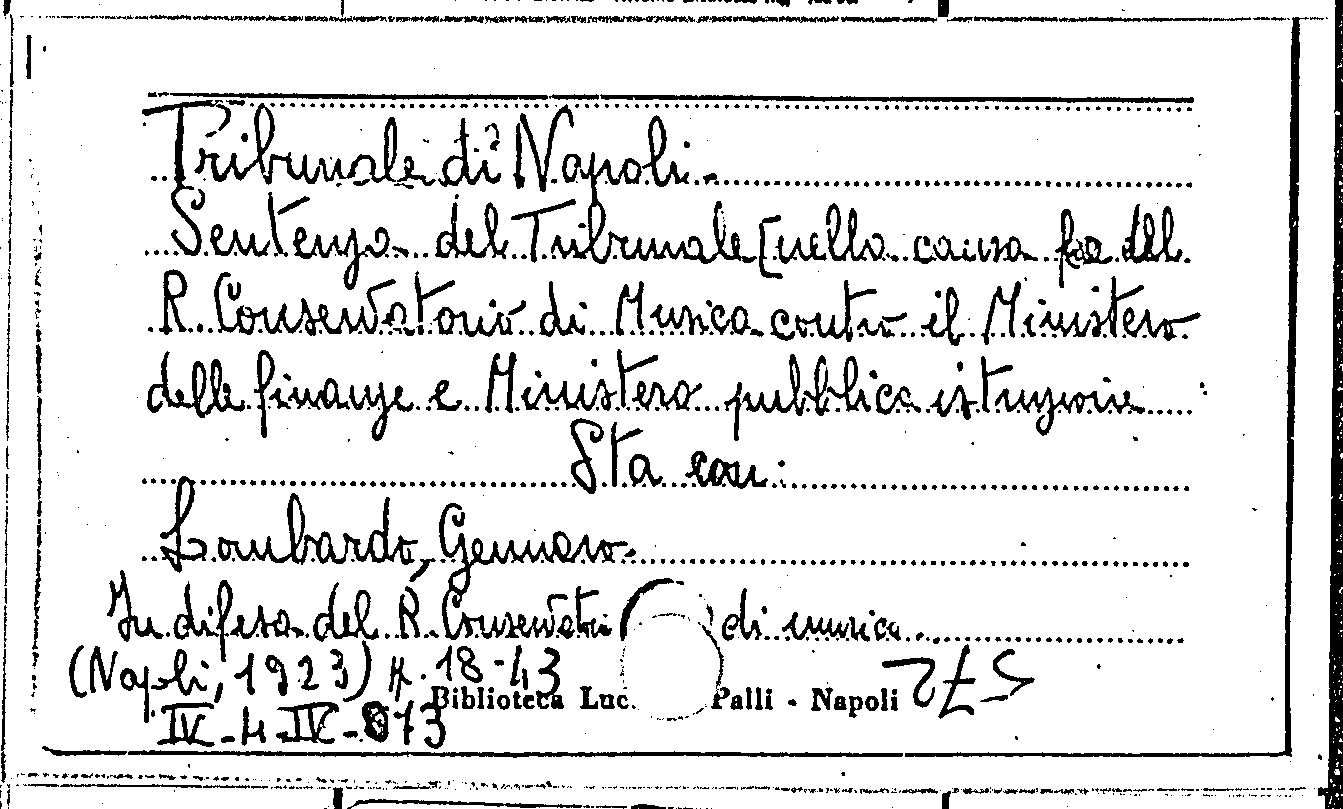 Tribunale di Napoli.
Sentenza del Tribunale [nella causa fra del
R. Conservatorio di Musica contro il Ministero
delle finanze e Ministero pubblica istruzione
Sta con:
Lombardo, Gennaro.
In difesa del R. Conservato di musica.
(Napoli, 1923) p. 18-43
Biblioteca Luc. Palli - Napoli
IV-4-IV-